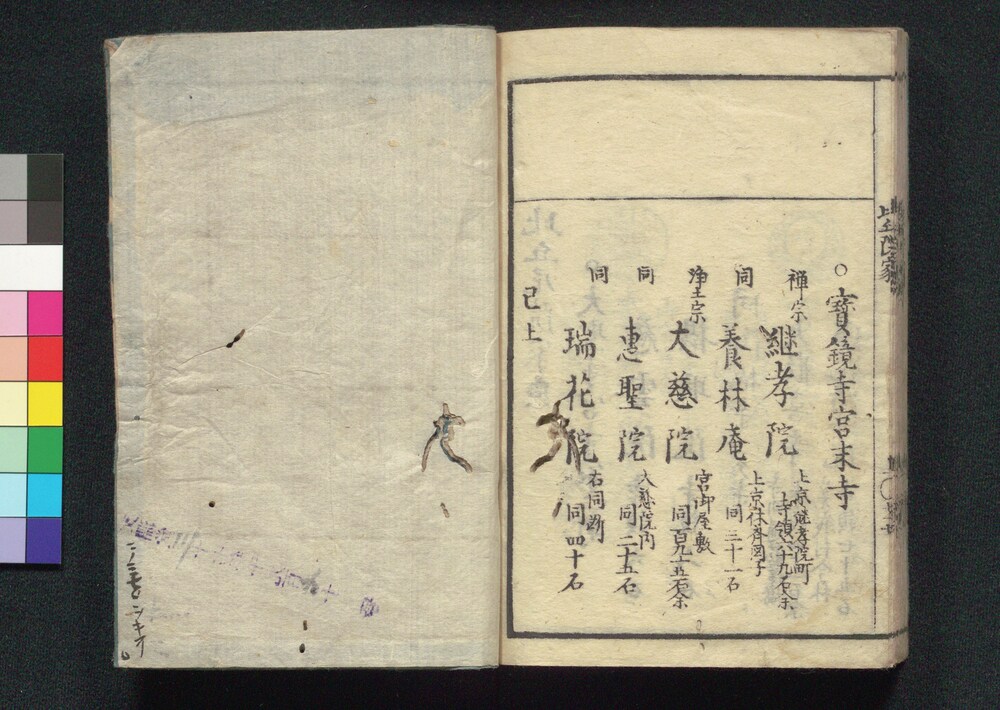 ○寶鏡寺宮末寺
禅宗 継孝院 上京継孝院町 寺領六十九石余
同 養林庵 上京休斎図子 同三十一石
浄土宗 大慈院 宮御屋敷 同百九十五石余
同 恵聖院 大慈院内 同二十五石
同 瑞花院 右同断 同四十石
已上
比丘尼院家